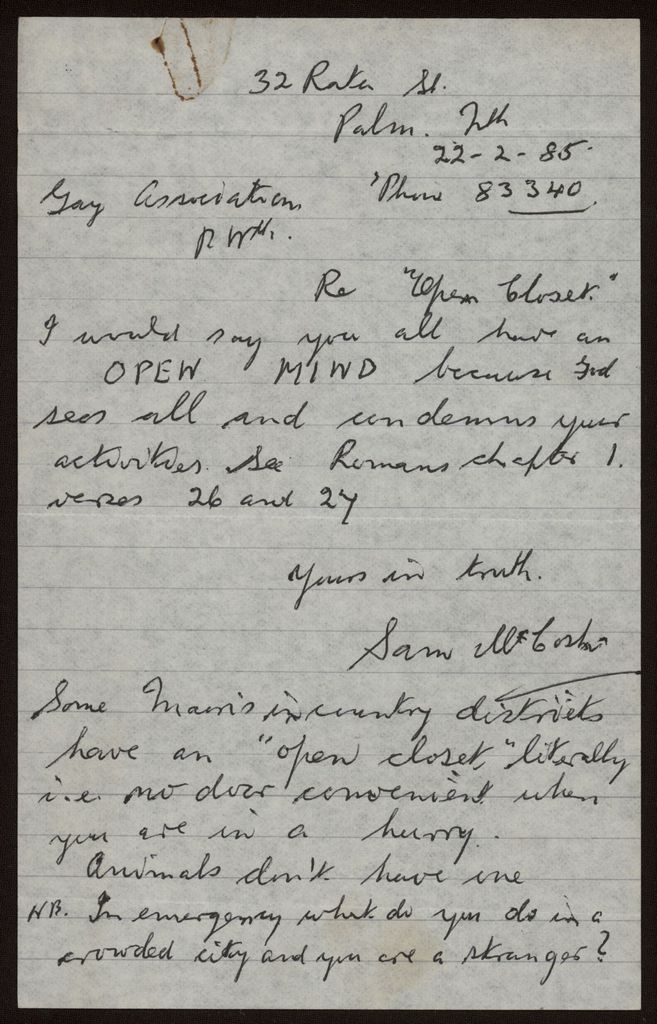 32 Rata St.
Palm. Nth
22-2-85.
Gay Association 'Phone 83340
P. Nth.
Re "Open Closet."
I would say you all have an
OPEN MIND because God
sees all and condemns your
activities. See Romans chapter 1.
verses 26 and 27
Yours in truth.
Sam
Some Maoris in country districts
have an "open closet," literally
i.e. no door convenient when
you are in a hurry.
Animals don't have one
NB. In emergency what do you do in a
crowded city and you are a stranger?